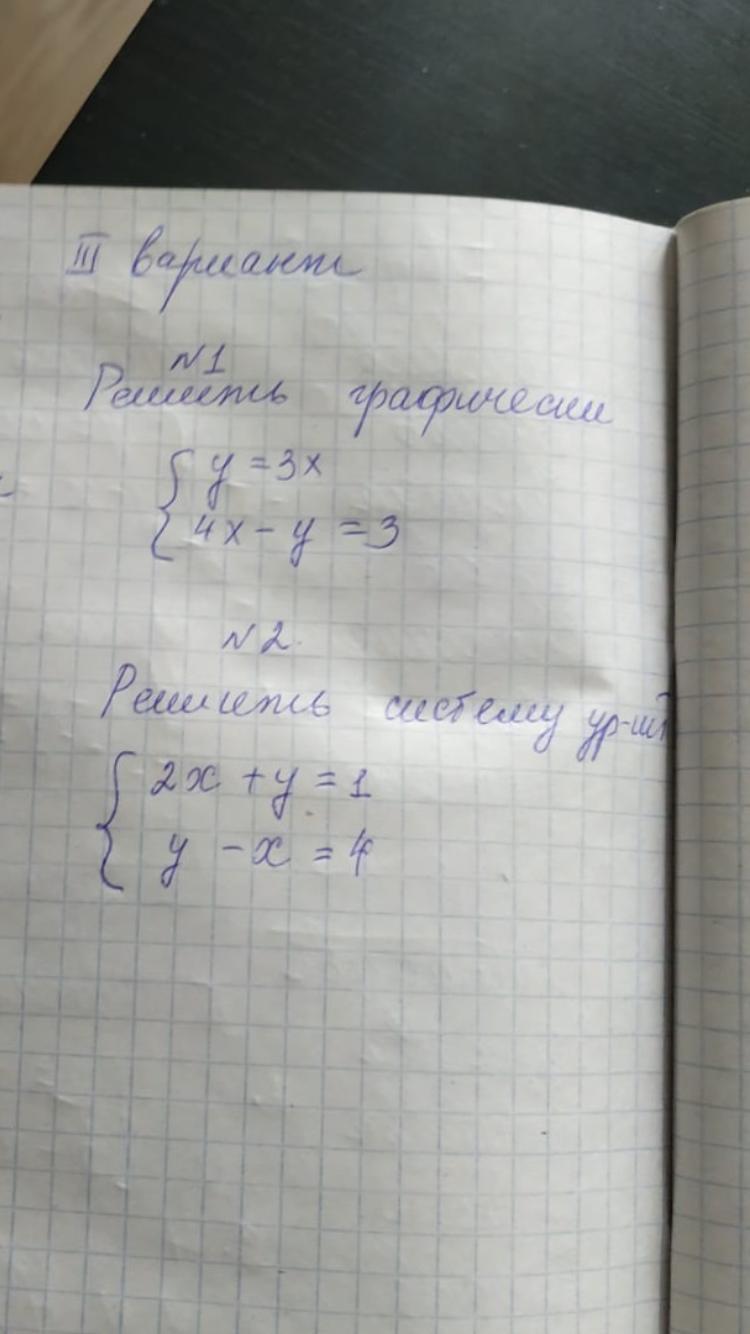 III вариант
N1
Решить графически
y = 3x
4x - y = 3
N2.
Решить систему ур-ий
2x + y = 1
y - x = 4